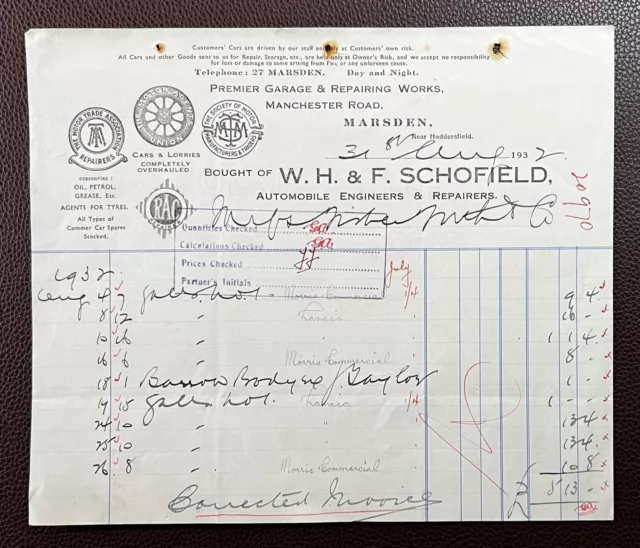 Customers' Cars are driven by our staff entirely at Customers' own risk.
All Cars and other Goods sent to us for Repair, Storage, etc., are held only at Owner's Risk, and we accept no responsibility
for loss or damage to same arising from Fire or any unforseen cause.
Telephone: 27 MARSDEN. Day and Night.
PREMIER GARAGE & REPAIRING WORKS,
MANCHESTER ROAD,
MARSDEN,
Near Huddersfield.
THE MOTOR TRADE ASSOCIATION
MTA
REPAIRERS
THE SOCIETY OF MOTOR
MANUFACTURERS & TRADERS
CARS & LORRIES
COMPLETELY
OVERHAULED.
31st Aug 1932.
BOUGHT OF W. H. & F. SCHOFIELD,
AUTOMOBILE ENGINEERS & REPAIRERS.
ccessories:
OIL, PETROL,
GREASE, Etc.
AGENTS FOR TYRES.
All Types of
Commer Car Spares
Stocked.
RAC
20970
Messrs Fisher & Co
Quantities Checked
Calculations Checked
Prices Checked
Partner's Initials
July
1932.
Aug 4 7 galls. No 1 - Morris Commercial 1/4 9 4.
8 12 " Lancia 16 -
10 16 " " 1 1 4.
16 6 " Morris Commercial 8 -
18 1 1 -
19 15 galls No 1. Lancia 1/4 1 - -
24 10 " " 13 4.
25 10 " " 13 4.
26 8 " Morris Commercial 10 8
£ 5 13 -
Corrected Invoice